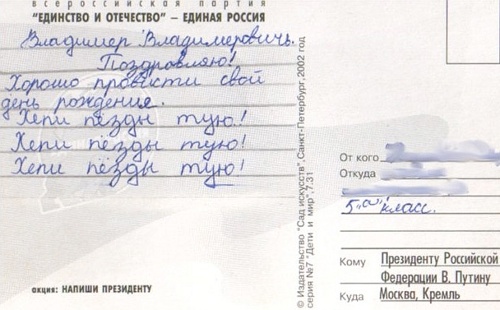 всероссийская партия
"ЕДИНСТВО И ОТЕЧЕСТВО" – ЕДИНАЯ РОССИЯ
Владимер Владимеровичь.
Поздравляю!
Хорошо провисти свой
день рождения.
Хепи пёзды тую!
Хепи пёзды тую!
Хепи пёзды тую!
акция: НАПИШИ ПРЕЗИДЕНТУ
© Издательство "Сад искусств", Санкт-Петербург, 2002 год
серия №7 "Дети и мир", 7.31
От кого
Откуда
5 "а" класс.
Кому Президенту Российской
Федерации В. Путину
Куда Москва, Кремль